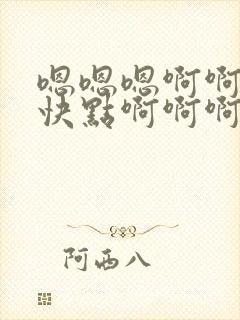 嗯嗯嗯啊啊
快點啊啊啊
阿西八